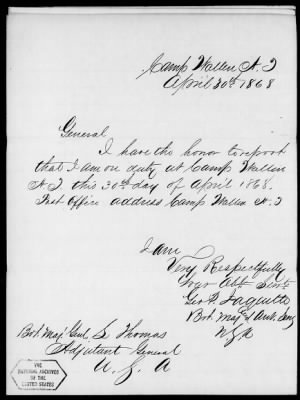 Camp Wallen, A. T
April 30th 1868
General
I have the honor to report
that I am on duty at Camp Wallen
A. T. this 30th day of April 1868.
Post Office address Camp Wallen A. T
I am
Very Respectfully
Your Obt. Servt.
Geo.
Bvt. Maj &
U. S. A
Bvt. Maj Genl. L Thomas
Adjutant General
U. S. A
THE
NATIONAL
ARCHIVES OF THE
UNITED STATES